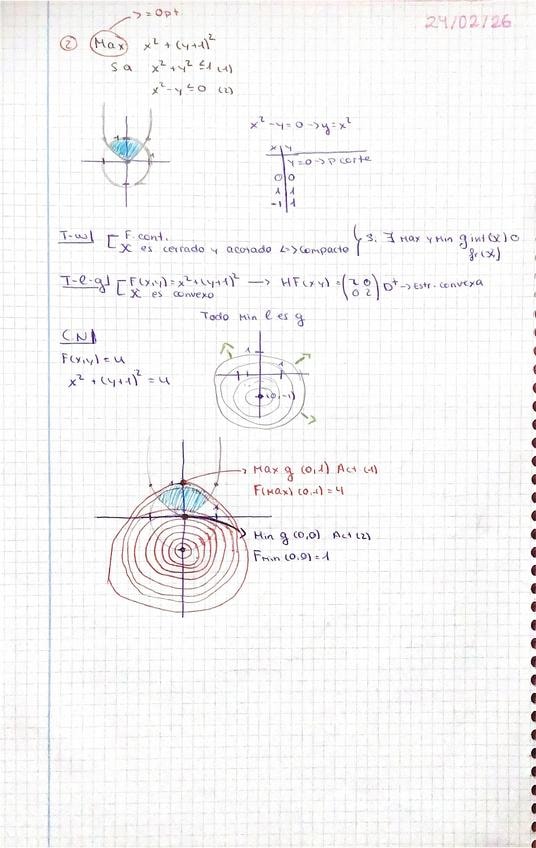 -> = Opt
24/02/26
② Max x² + (y+1)²
S a x² + y² ≤ 1 (1)
x² - y ≤ 0 (2)
x² - y = 0 -> y = x²
x | y
y = 0 -> P corte
0 | 0
1 | 1
-1 | 1
T-w [ F. cont.
X es cerrado y acotado <-> Compacto } S. ∃ Max y Min g int(X) o fr(X)
T-l-g [ F(x,y) = x² + (y+1)² -> HF(x,y) = (2 0 / 0 2) D⁺ -> Estr. convexa
X es convexo
Todo Min l es g
C.N
F(x,y) = u
x² + (y+1)² = u
1
1
(0,-1)
Max g (0,1) Act (1)
F(Max) (0,1) = 4
Min g (0,0) Act (2)
Fmin (0,0) = 1